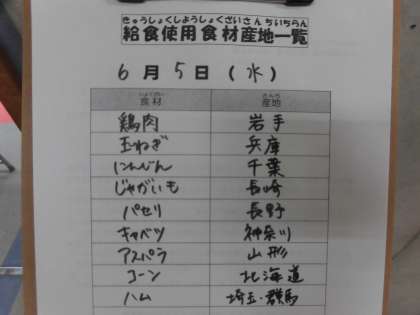 きゅうしょくしようしょくざいさんちいちらん
給食使用食材産地一覧
6月5日(水)
しょくざい さんち
食材 産地
鶏肉 岩手
玉ねぎ 兵庫
にんじん 千葉
じゃがいも 長崎
パセリ 長野
キャベツ 神奈川
アスパラ 山形
コーン 北海道
ハム 埼玉・群馬